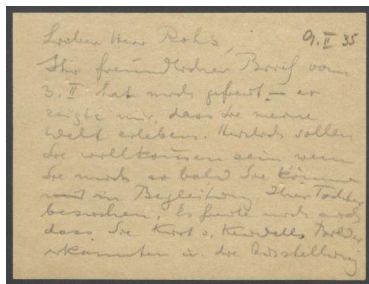 Lieber Herr Rohs, 9.II 35
Ihr freundlicher Brief vom
3. II hat mich gefreut, – er
zeigte mir, dass Sie meine
Welt erleben. Herzlich sollen
Sie willkommen sein wenn
Sie mich so bald Sie können
mit in Begleitung Ihrer Tochter
besuchen. Es freute mich auch
dass Sie Bilder
erkannten u. die Ausstellung